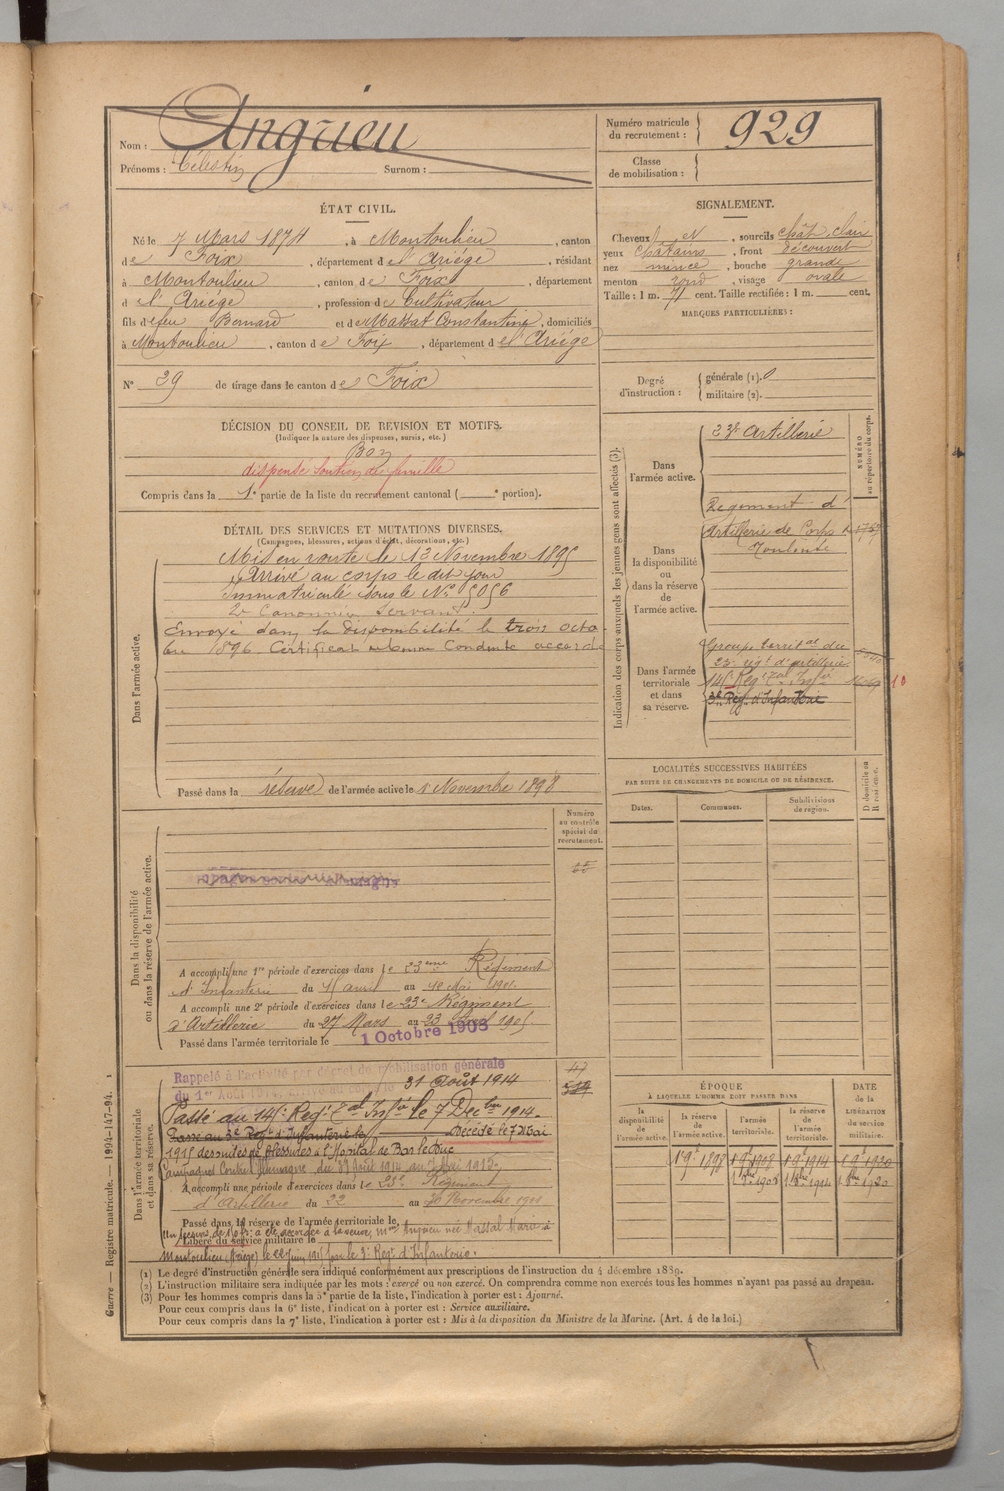 Nom : Anguieu
Prénoms : Célestin Surnom :
Numéro matricule du recrutement : 929
Classe de mobilisation :
ÉTAT CIVIL.
Né le 7 Mars 1874, à Montoulieu, canton
de Foix, département de l'Ariège, résidant
à Montoulieu, canton de Foix, département
d l'Ariège, profession de Cultivateur
fils de feu Bernard et de Massat Constantine, domiciliés
à Montoulieu, canton de Foix, département de l'Ariège
N° 39 de tirage dans le canton de Foix
SIGNALEMENT.
Cheveux N, sourcils chât. clair
yeux châtains, front découvert
nez mince, bouche grande
menton rond, visage ovale
Taille : 1 m. 71 cent. Taille rectifiée : 1 m. cent.
MARQUES PARTICULIÈRES :
Degré d'instruction : générale (1). 0
militaire (2).
DÉCISION DU CONSEIL DE RÉVISION ET MOTIFS.
(Indiquer la nature des dispenses, sursis, etc.)
Bon
dispensé Soutien de famille
Compris dans la 1e partie de la liste du recrutement cantonal ( e portion).
DÉTAIL DES SERVICES ET MUTATIONS DIVERSES.
(Campagnes, blessures, actions d'éclat, décorations, etc.)
Dans l'armée active.
Mis en route le 13 Novembre 1895
Arrivé au corps le dit jour
Immatriculé sous le N° 5056
2e Canonnier Servant.
Envoyé dans la disponibilité le trois octo-
bre 1896. Certificat de bonne Conduite accordé
Passé dans la réserve de l'armée active le 1 Novembre 1898
Indication des corps auxquels les jeunes gens sont affectés (3).
NUMÉRO au répertoire du corps.
Dans l'armée active.
23e Artillerie
Dans la disponibilité ou dans la réserve de l'armée active.
Régiment d'
Artillerie de Corps
Toulouse
Dans l'armée territoriale et dans sa réserve.
Groupe territal du
23e régt d'artillerie
145e Regt Tal Infie 10
3e Regt d'Infanterie
LOCALITÉS SUCCESSIVES HABITÉES
PAR SUITE DE CHANGEMENTS DE DOMICILE OU DE RÉSIDENCE.
Dates. Communes. Subdivisions de région. D domicile ou R résidence.
Numéro au contrôle spécial du recrutement.
Dans la disponibilité ou dans la réserve de l'armée active.
A accompli une 1re période d'exercices dans le 23eme Régiment
d'Infanterie du 15 avril au
A accompli une 2e période d'exercices dans le 23e Régiment
d'Artillerie du 27 Mars au 23 Avril 1905.
Passé dans l'armée territoriale le 1 Octobre 1908
Dans l'armée territoriale et dans sa réserve.
Rappelé à l'activité par décret de mobilisation générale
du 1er Août 1914, Arrivé au corps le 31 Août 1914
Passé au 145e Regt Tal Infie le 7 Dec bre 1914.
Passé au 3e Regt d'Infanterie le Décédé le 7 Mai
1915 des suites de blessures à l'Hopital de Bar le Duc
Campagnes Contre l'Allemagne du 31 Août 1914 au 7 Mai 1915.
A accompli une période d'exercices dans le 23e Régiment
d'Artillerie du 22 au 30 Novembre 1911
Passé dans la réserve de l'armée territoriale le
Un secours de 150 fr. a été accordé à la veuve, Mme Anguieu née Massat Marie à
Libéré du service militaire le
Montoulieu (Ariège) le 22 juin 1915 par le 3e Regt d'Infanterie.
ÉPOQUE
À LAQUELLE L'HOMME DOIT PASSER DANS
DATE de la LIBÉRATION du service militaire.
la disponibilité de l'armée active. la réserve de l'armée active. l'armée territoriale. la réserve de l'armée territoriale.
1 9e 1898 1 9e 1908 1 9e 1914 1 9e 1920
1 8bre 1908 1 8bre 1914 1 8bre 1920
(1) Le degré d'instruction générale sera indiqué conformément aux prescriptions de l'instruction du 4 décembre 1889.
(2) L'instruction militaire sera indiquée par les mots : exercé ou non exercé. On comprendra comme non exercés tous les hommes n'ayant pas passé au drapeau.
(3) Pour les hommes compris dans la 5e partie de la liste, l'indication à porter est : Ajourné.
Pour ceux compris dans la 6e liste, l'indication à porter est : Service auxiliaire.
Pour ceux compris dans la 7e liste, l'indication à porter est : Mis à la disposition du Ministre de la Marine. (Art. 4 de la loi.)
Guerre — Registre matricule. — 1994-147-94. 1